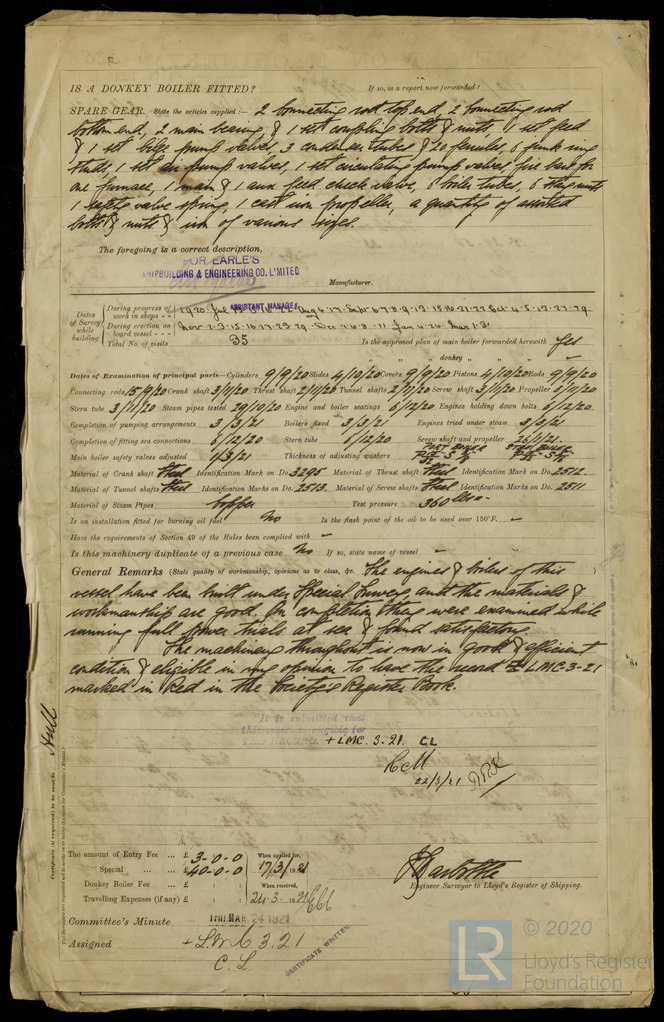 IS A DONKEY BOILER FITTED? If so, is a report now forwarded?
SPARE GEAR. State the articles supplied:— 2 connecting rod top end, 2 connecting rod
bottom end, 2 main bearing, & 1 set coupling bolts & nuts, 1 set feed
& 1 set bilge pump valves, 3 condenser tubes & 20 ferrules, 6 junk ring
studs, 1 set air pump valves, 1 set circulating pump valves, fire bars for
one furnace, 1 main & 1 aux feed check valve, 6 boiler tubes, 6 stay nuts
1 safety valve spring, 1 cast iron propeller, a quantity of assorted
bolts & nuts & iron of various sizes.
The foregoing is a correct description,
FOR EARLE'S
SHIPBUILDING & ENGINEERING CO. LIMITED
Manufacturer.
ASSISTANT MANAGER
Dates of Survey while building
During progress of work in shops - - 1920
During erection on board vessel - - - Nov 2.3.15.16.17.23.29. Dec 7.6.8.11 Jan 4.26. Mar 1.3.
Total No. of visits 35 Is the approved plan of main boiler forwarded herewith Yes
" " " donkey " "
Dates of Examination of principal parts—Cylinders 9/9/20 Slides 4/10/20 Covers 9/9/20 Pistons 4/10/20 Rods 9/9/20
Connecting rods 15/9/20 Crank shaft 3/11/20 Thrust shaft 2/11/20 Tunnel shafts 2/11/20 Screw shaft 3/11/20 Propeller 3/11/20
Stern tube 3/11/20 Steam pipes tested 29/10/20 Engine and boiler seatings 6/12/20 Engines holding down bolts 6/12/20
Completion of pumping arrangements 3/3/21 Boilers fixed 3/3/21 Engines tried under steam 3/3/21
Completion of fitting sea connections 6/12/20 Stern tube 6/12/20 Screw shaft and propeller 26/1/21
Main boiler safety valves adjusted 1/3/21 Thickness of adjusting washers
Material of Crank shaft Steel Identification Mark on Do. 3295 Material of Thrust shaft Steel Identification Mark on Do. 2512
Material of Tunnel shafts Steel Identification Marks on Do. 2513 Material of Screw shafts Steel Identification Marks on Do. 2511
Material of Steam Pipes Copper Test pressure 360 lbs
Is an installation fitted for burning oil fuel No Is the flash point of the oil to be used over 150°F.
Have the requirements of Section 49 of the Rules been complied with
Is this machinery duplicate of a previous case No If so, state name of vessel
General Remarks (State quality of workmanship, opinions as to class, &c. The engines & boilers of this
vessel have been built under Special Survey and the materials &
workmanship are good. On completion they were examined while
running full power trials at sea & found satisfactory.
The machinery throughout is now in good & efficient
condition & eligible in my opinion to have the record + LMC 3-21
marked in Red in the Society's Register Book.
It is submitted that
this vessel is eligible for
THE RECORD. + LMC. 3.21. CL
22/3/21
Hull
Certificate (if required) to be sent to
The amount of Entry Fee ... £ 3-0-0 When applied for,
Special ... £ 40-0-0 17/3/1921
Donkey Boiler Fee ... £ : : When received,
Travelling Expenses (if any) £ : : 24.3.1921
Engineer Surveyor to Lloyd's Register of Shipping.
Committee's Minute THU. MAR. 24 1921
Assigned + LMC 3.21
C. L.
CERTIFICATE WRITTEN
© 2020
LR
Lloyd's Register
Foundation